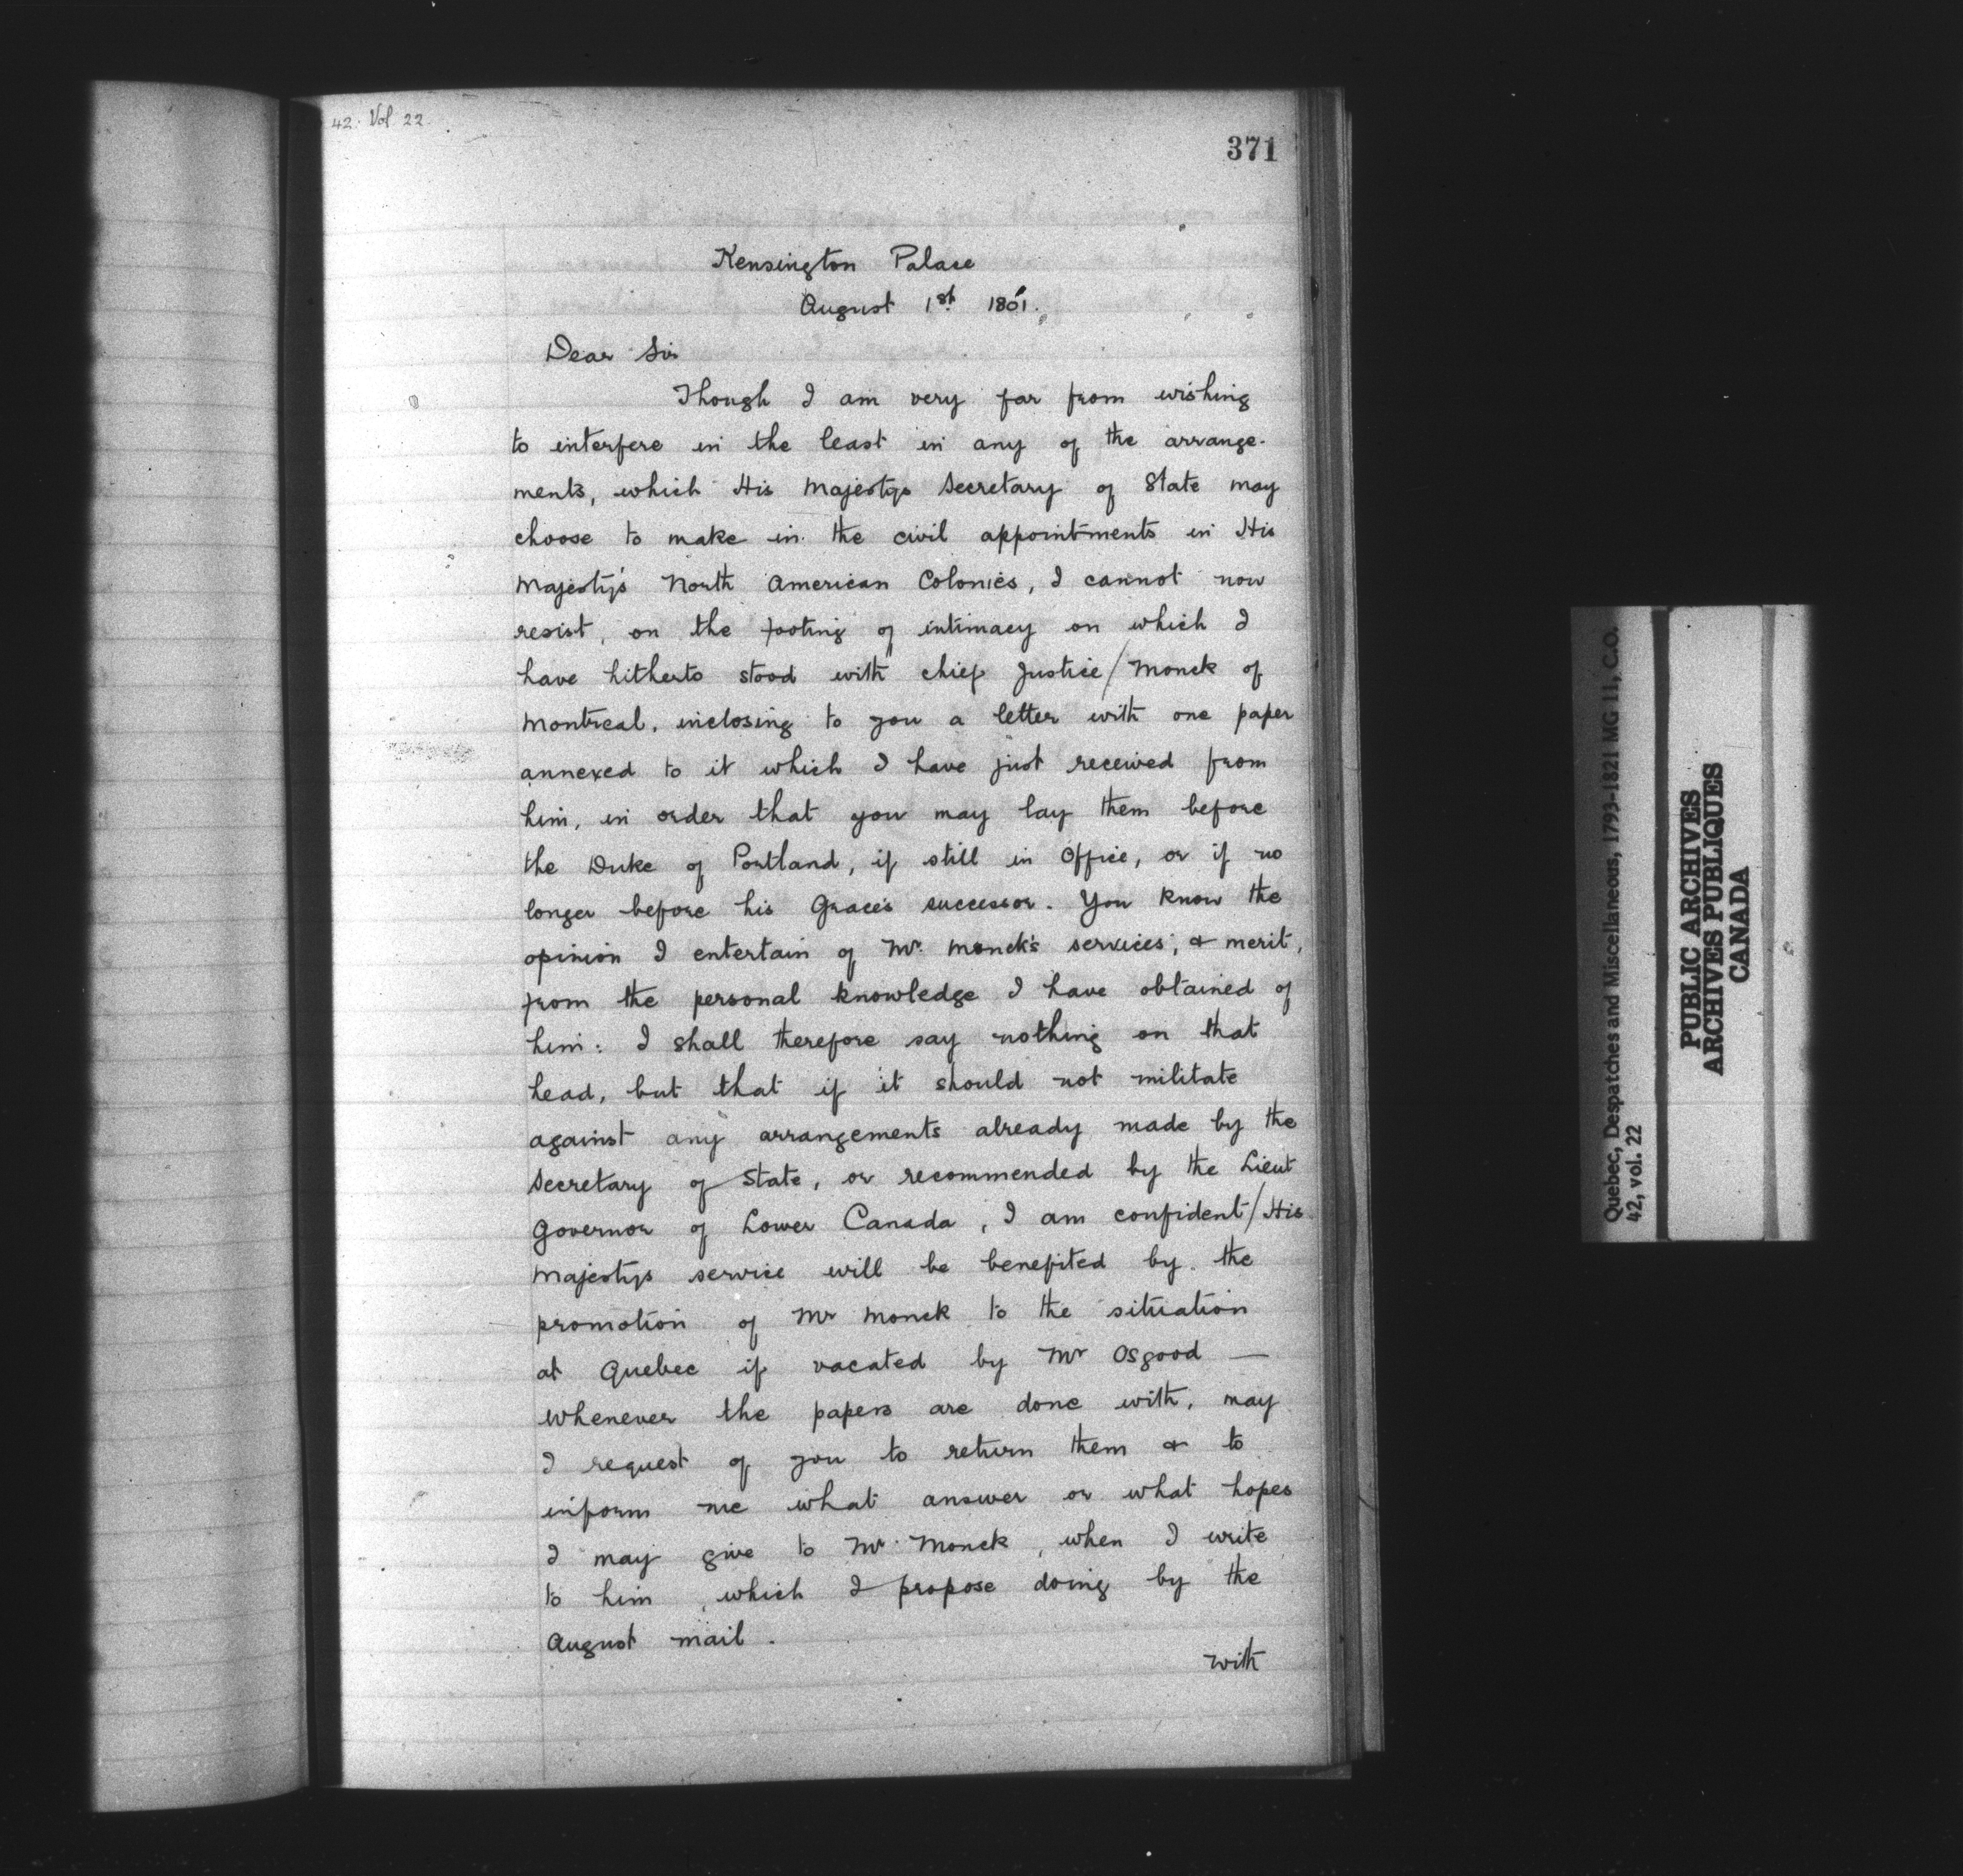 42. Vol 22.
371
Kensington Palace
August 1st 1801.
Dear Sir
Though I am very far from wishing
to interfere in the least in any of the arrange-
ments, which His Majestys Secretary of State may
choose to make in the civil appointments in His
Majesty's North American Colonies, I cannot now
resist, on the footing of intimacy on which I
have hitherto stood with chief Justice/Monck of
Montreal, inclosing to you a letter with one paper
annexed to it which I have just received from
him, in order that you may lay them before
the Duke of Portland, if still in Office, or if no
longer before his Grace's successor. You know the
opinion I entertain of Mr. Monck's services, & merit,
from the personal knowledge I have obtained of
him: I shall therefore say nothing on that
head, but that if it should not militate
against any arrangements already made by the
Secretary of State, or recommended by the Lieut
Governor of Lower Canada, I am confident/His
Majestys service will be benefited by the
promotion of Mr Monck to the situation
at Quebec if vacated by Mr Osgood —
Whenever the papers are done with, may
I request of you to return them & to
inform me what answer or what hopes
I may give to Mr. Monck, when I write
to him, which I propose doing by the
August mail.
with
Quebec, Despatches and Miscellaneous, 1793-1821 MG 11, C.O.
42, vol. 22
PUBLIC ARCHIVES
ARCHIVES PUBLIQUES
CANADA